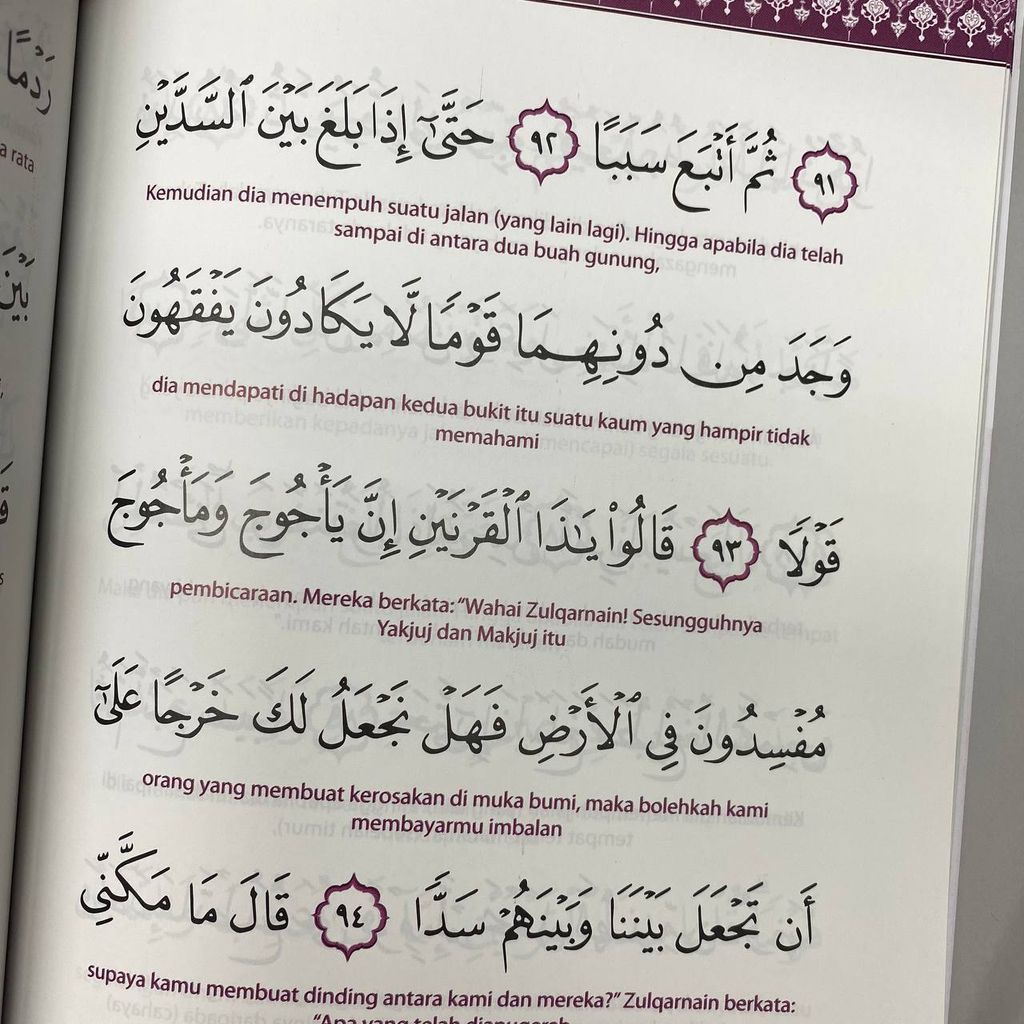 ٩١ ثُمَّ أَتْبَعَ سَبَبًا ٩٢ حَتَّىٰٓ إِذَا بَلَغَ بَيْنَ ٱلسَّدَّيْنِ
Kemudian dia menempuh suatu jalan (yang lain lagi). Hingga apabila dia telah
sampai di antara dua buah gunung,
وَجَدَ مِن دُونِهِمَا قَوْمًا لَّا يَكَادُونَ يَفْقَهُونَ
dia mendapati di hadapan kedua bukit itu suatu kaum yang hampir tidak
memahami
قَوْلًا ٩٣ قَالُوا۟ يَٰذَا ٱلْقَرْنَيْنِ إِنَّ يَأْجُوجَ وَمَأْجُوجَ
pembicaraan. Mereka berkata: “Wahai Zulqarnain! Sesungguhnya
Yakjuj dan Makjuj itu
مُفْسِدُونَ فِى ٱلْأَرْضِ فَهَلْ نَجْعَلُ لَكَ خَرْجًا عَلَىٰٓ
orang yang membuat kerosakan di muka bumi, maka bolehkah kami
membayarmu imbalan
أَن تَجْعَلَ بَيْنَنَا وَبَيْنَهُمْ سَدًّا ٩٤ قَالَ مَا مَكَّنِّى
supaya kamu membuat dinding antara kami dan mereka?” Zulqarnain berkata:
“Apa yang telah dianugerah
رَدْمًا
a rata
بَيْنَ